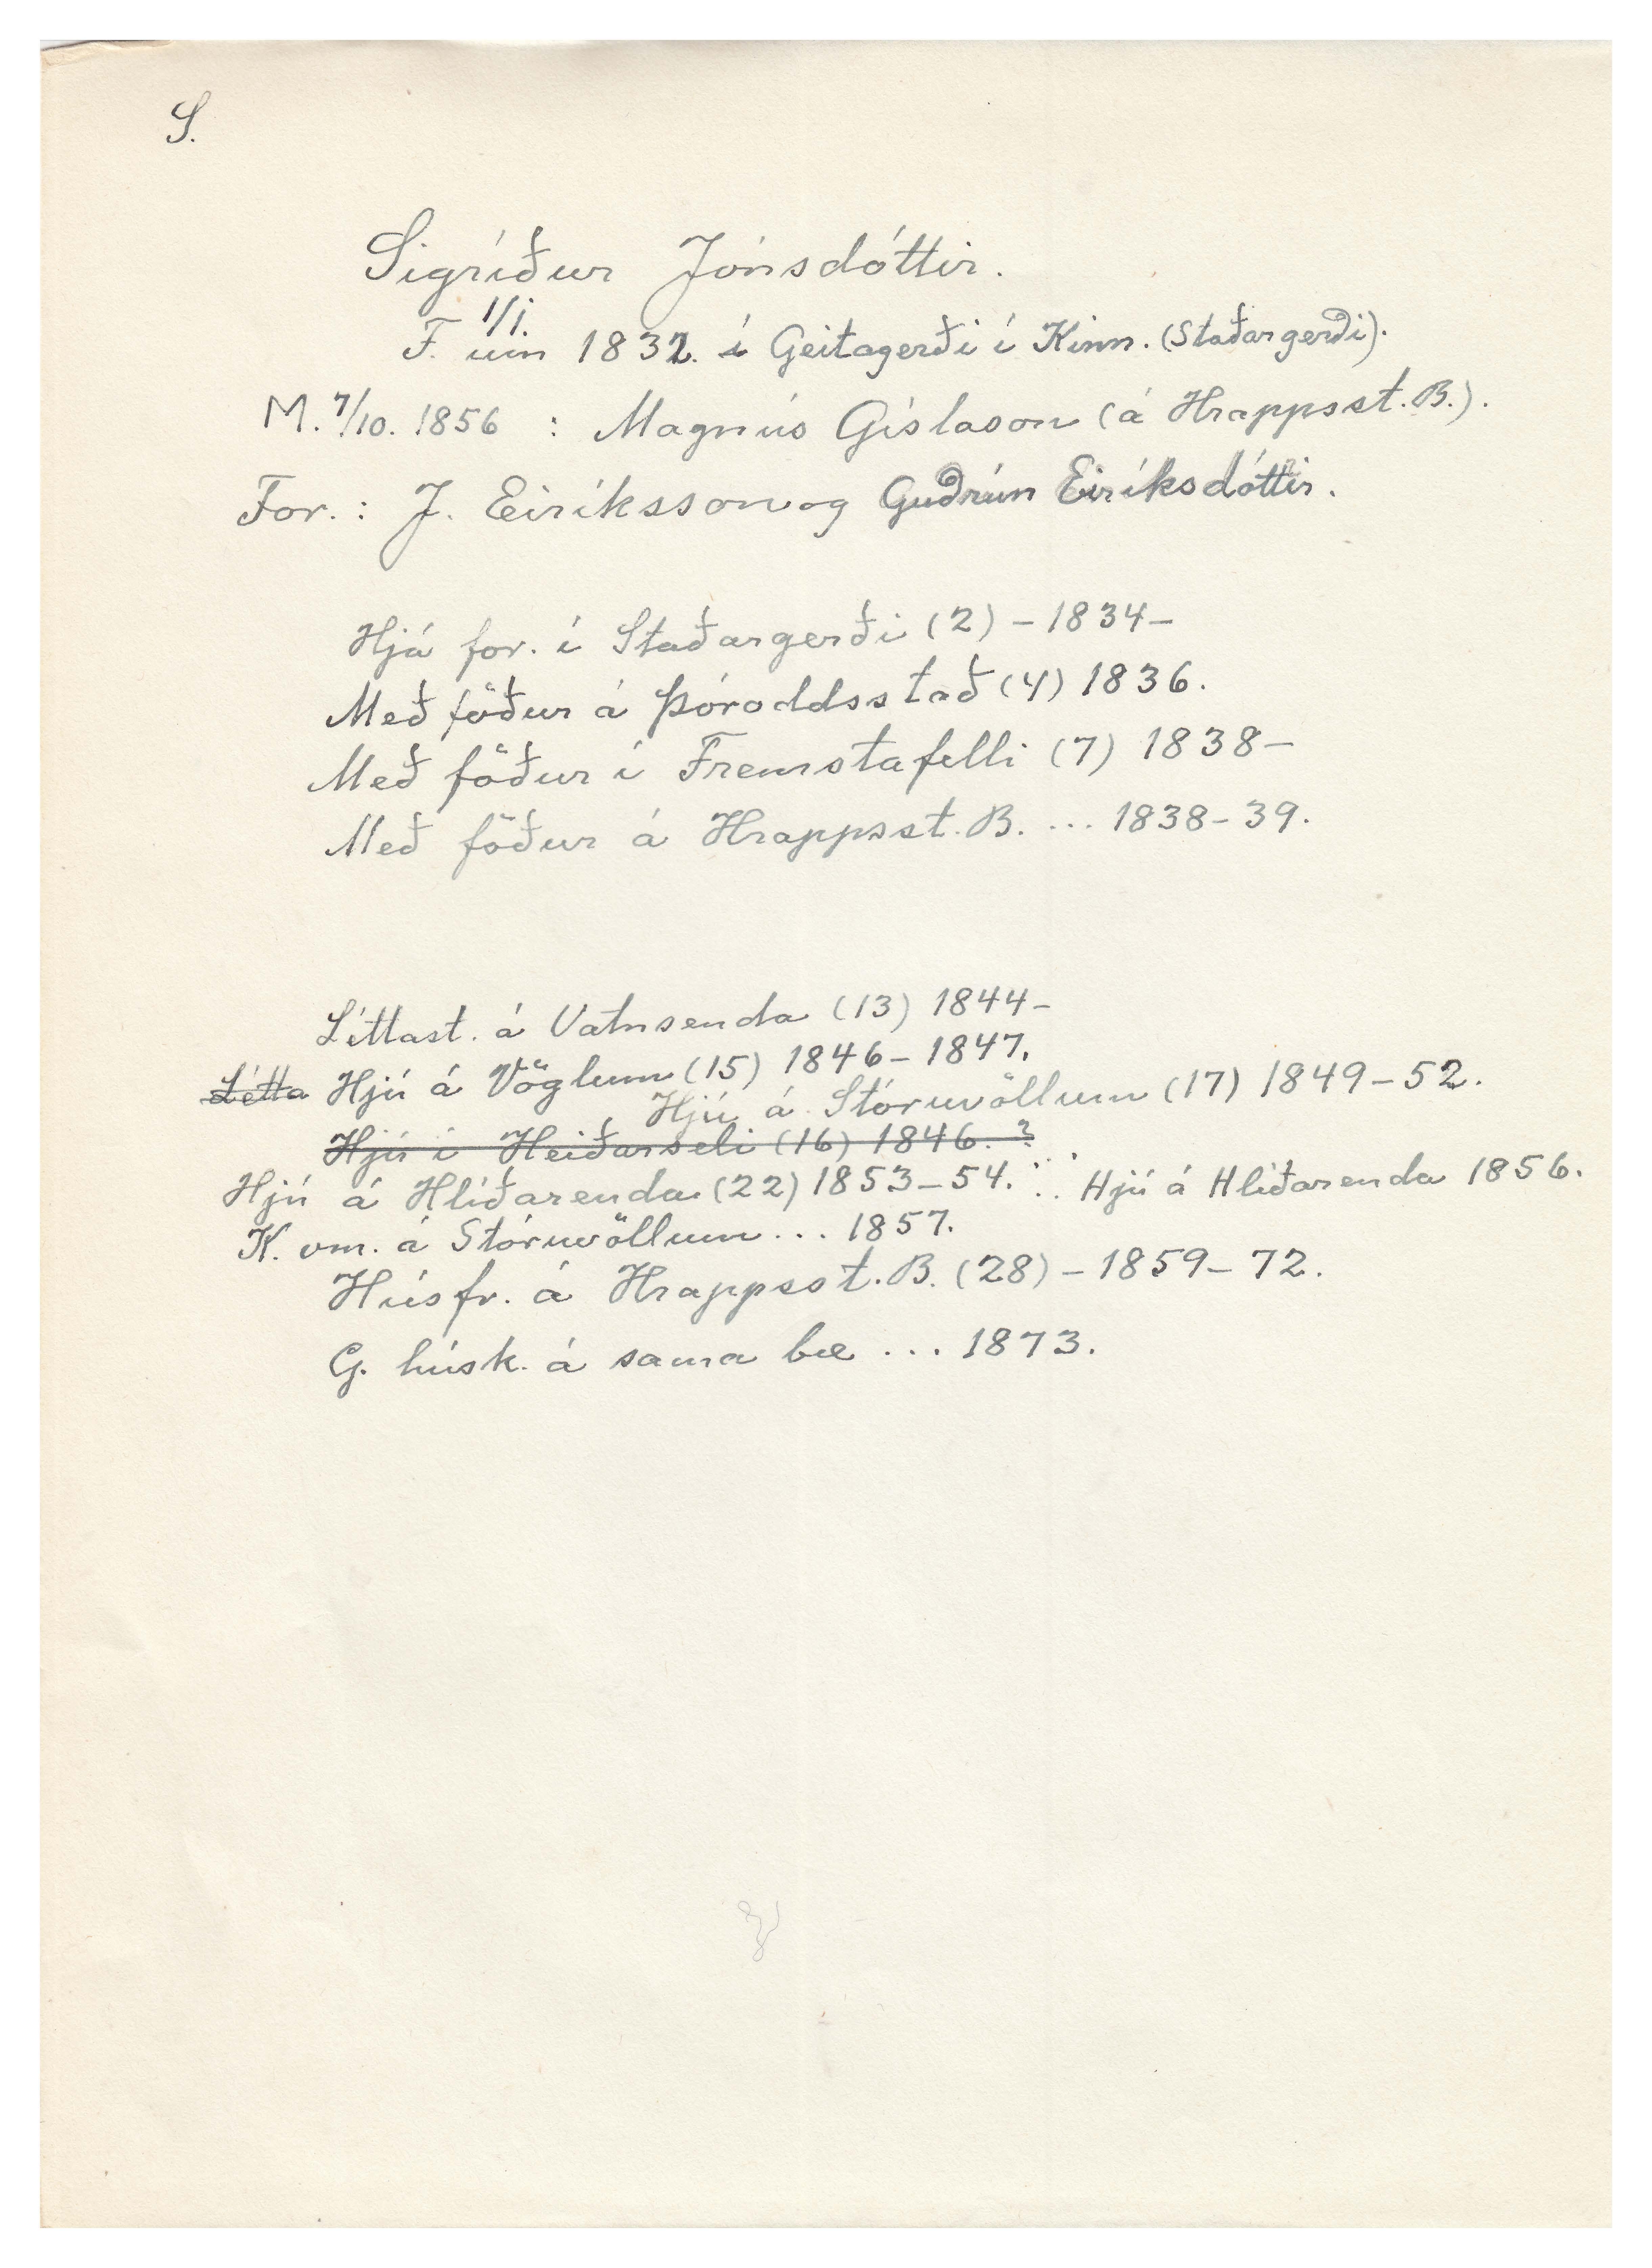 S.
Sigríður Jónsdóttir.
1/1.
F. um 1832. í Geitagerði í Kinn. (Staðargerði).
M. 7/10. 1856 : Magnús Gíslason (á Hrappsst. B.).
For.: J. Eiríksson og Guðrún Eiríksdóttir.
Hjá for. í Staðargerði (2) – 1834 –
Með föður á Þóroddsstað (4) 1836.
Með föður í Fremstafelli (7) 1838 –
Með föður á Hrappsst. B. ... 1838 – 39.
Léttast. á Vatnsenda (13) 1844 –
Létta Hjú á Vöglum (15) 1846 – 1847.
Hjú á Stóruvöllum (17) 1849 – 52.
Hjú í Heiðarseli (16) 1846. ?
Hjú á Hlíðarenda (22) 1853 – 54. ... Hjú á Hlíðarenda 1856.
K. vm. á Stóruvöllum ... 1857.
Húsfr. á Hrappsst. B. (28) – 1859 – 72.
G. húsk. á sama bæ ... 1873.